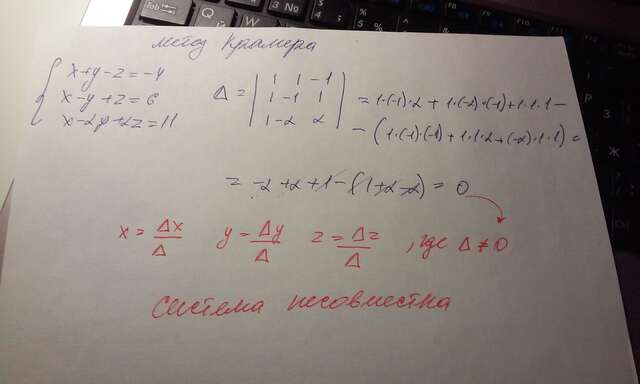 метод Крамера
x+y-z=-4
x-y+z=6
x-2y+2z=11
Δ = | 1 1 -1 | = 1·(-1)·2 + 1·(-2)·(-1)+1·1·1 -
| 1 -1 1 |
| 1 -2 2 | - (1·(-1)·(-1) + 1·1·2 + (-2)·1·1) =
= -2 + 2 + 1 - (1+2-2) = 0
x = Δx/Δ y = Δy/Δ z = Δz/Δ , где Δ ≠ 0
система несовместна